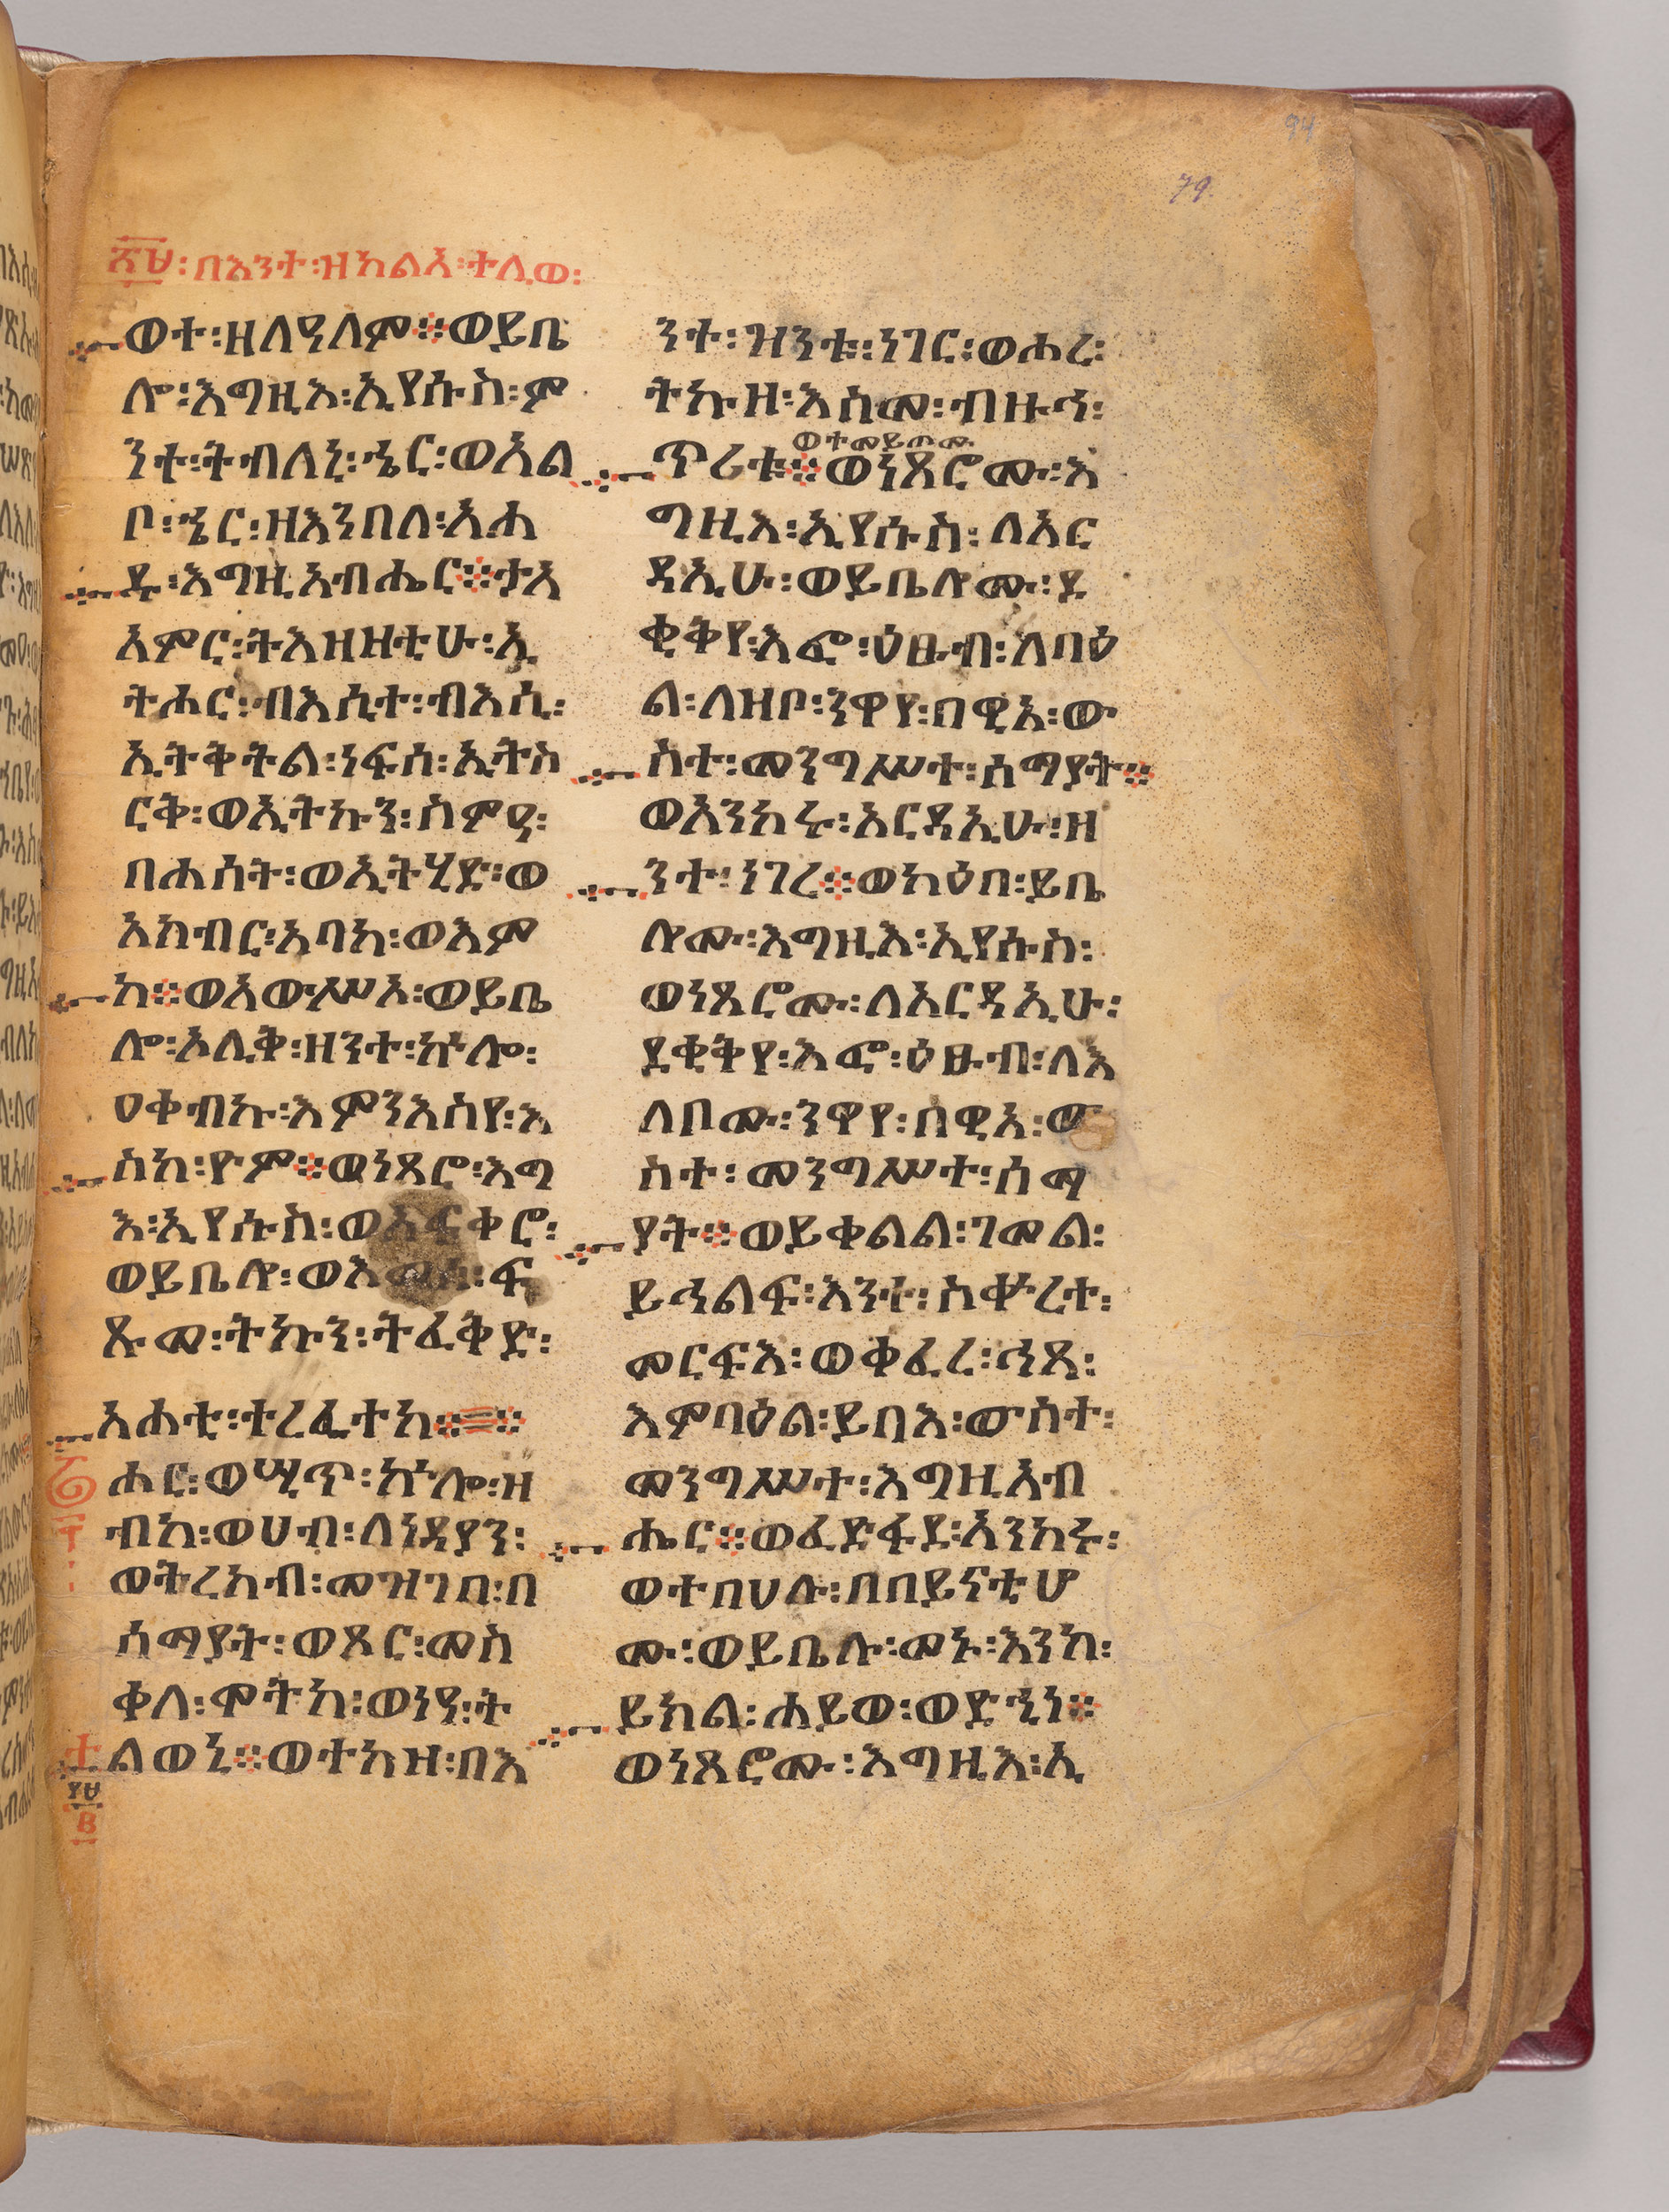 94
79.
፳፱፡በእንተ፡ዝከልአ፡ተሊወ፡
ወተ፡ዘለዓለም።ወይቤ
ሎ፡እግዚእ፡ኢየሱስ፡ም
ንተ፡ትብለኒ፡ኄር፡ወአል
ቦ፡ኄር፡ዘእንበለ፡አሐ
ዱ፡እግዚአብሔር።ታአ
አምር፡ትእዘዘቲሁ፡ኢ
ትሐር፡ብእሲተ፡ብእሲ፡
ኢትቅትል፡ነፍሰ፡ኢትስ
ርቅ፡ወኢትኩን፡ስምዓ፡
በሐሰት፡ወኢትሂድ፡ወ
አክብር፡አባከ፡ወእም
ከ።ወአውሥአ፡ወይቤ
ሎ፡ኦሊቅ፡ዘንተ፡ኵሎ፡
ዐቀብኩ፡እምንእስየ፡እ
ስከ፡ዮም።ወነጸሮ፡እግ
እ፡ኢየሱስ፡ወአፍቀሮ፡
ወይቤሎ፡ወእመሰ፡ፍ
ጹመ፡ትኩን፡ትፈቅድ፡
አሐቲ፡ተረፈተከ።=።
ሐር፡ወሢጥ፡ኵሎ፡ዘ
ብከ፡ወሀብ፡ለነዳያን፡
ወትረክብ፡መዝገበ፡በ
ሰማያት፡ወጾር፡መስ
ቀለ፡ሞትከ፡ወነዓ፡ት
ልወኒ።ወተከዘ፡በእ
ንተ፡ዝንቱ፡ነገር፡ወሐረ፡
ትኩዘ፡እስመ፡ብዙኅ፡
ወተመይጠመ
ጥሪቱ።ወነጸሮሙ፡እ
ግዚእ፡ኢየሱስ፡ለአር
ዳኢሁ፡ወይቤሎሙ፡ደ
ቂቅየ፡እፎ፡ዕፁብ፡ለባዕ
ል፡ለዘቦ፡ንዋየ፡በዊአ፡ው
ስተ፡መንግሥተ፡ሰማያት።
ወአንከሩ፡አርዳኢሁ፡ዘ
ንተ፡ነገረ።ወካዕበ፡ይቤ
ሎሙ፡እግዚእ፡ኢየሱስ፡
ወነጸሮሙ፡ለአርዳኢሁ፡
ደቂቅየ፡እፎ፡ዕፁብ፡ለእ
ለቦሙ፡ንዋየ፡በዊአ፡ው
ስተ፡መንግሥተ፡ሰማ
ያት።ወይቀልል፡ገመል፡
ይኅልፍ፡እንተ፡ስቍረተ፡
መርፍእ፡ወቀፈረ፡ኅጸ፡
እምባዕል፡ይበእ፡ውስተ፡
መንግሥተ፡እግዚአብ
ሔር።ወፈድፋደ፡አንከሩ፡
ወተበሀሉ፡በበይናቲሆ
ሙ፡ወይቤሉ፡መኑ፡እንከ፡
ይክል፡ሐይወ፡ወድኂነ።
ወነጸሮሙ፡እግዚእ፡ኢ